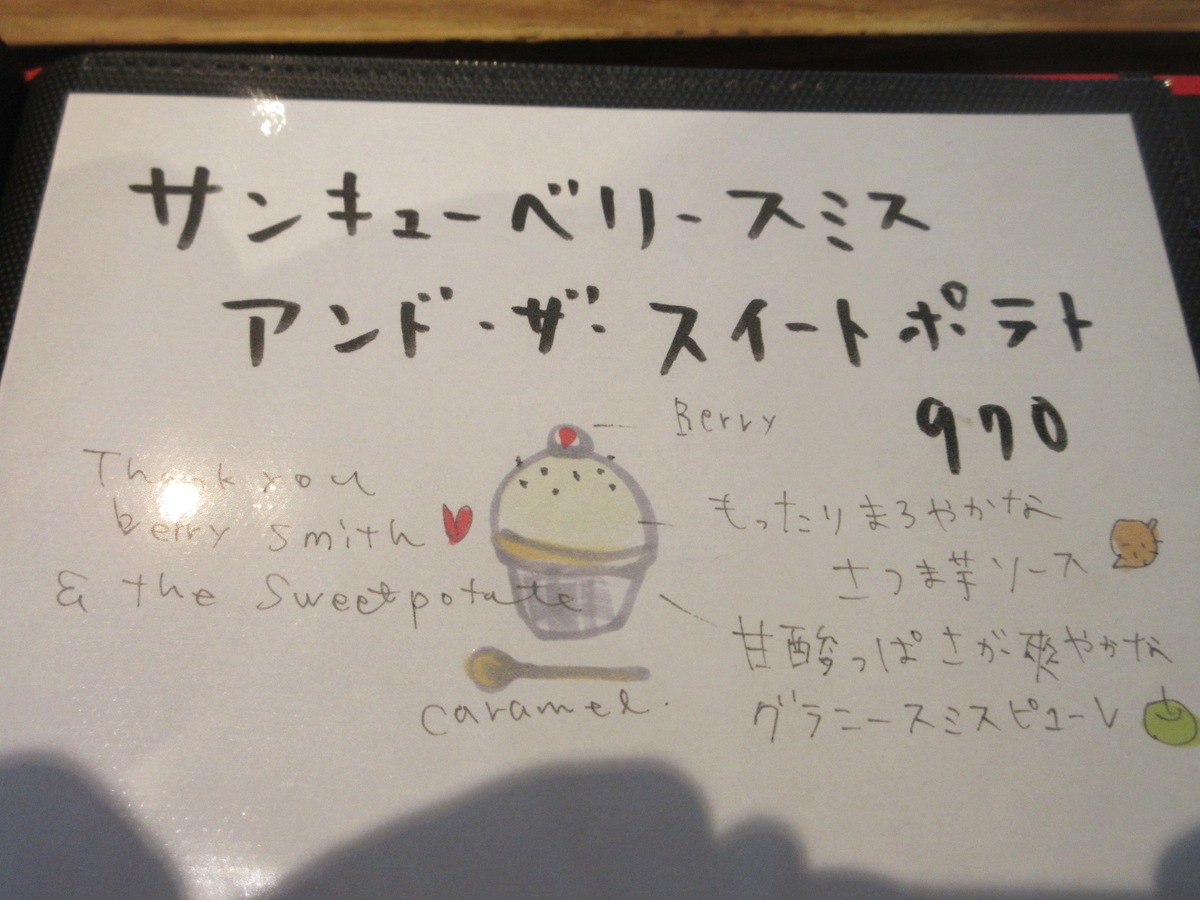 サンキューベリースミス
アンド・ザ・スイートポテト
970
Berry
Thank you
berry smith
& the Sweetpotate
もったりまろやかな
さつま芋ソース
甘酸っぱさが爽やかな
グラニースミスピューレ
caramel.